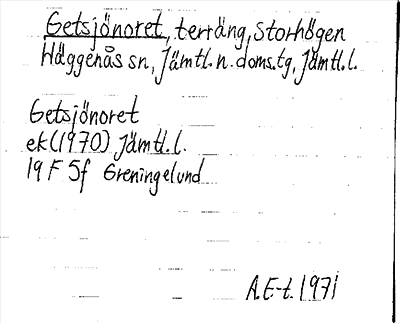 Getsjönoret, terräng, Storhögen
Häggenås sn, Jämtl. n. doms.tg, Jämtl. l.
Getsjönoret
ek (1970) Jämtl. l.
19 F 5f Greningelund
A.E-t. 1971